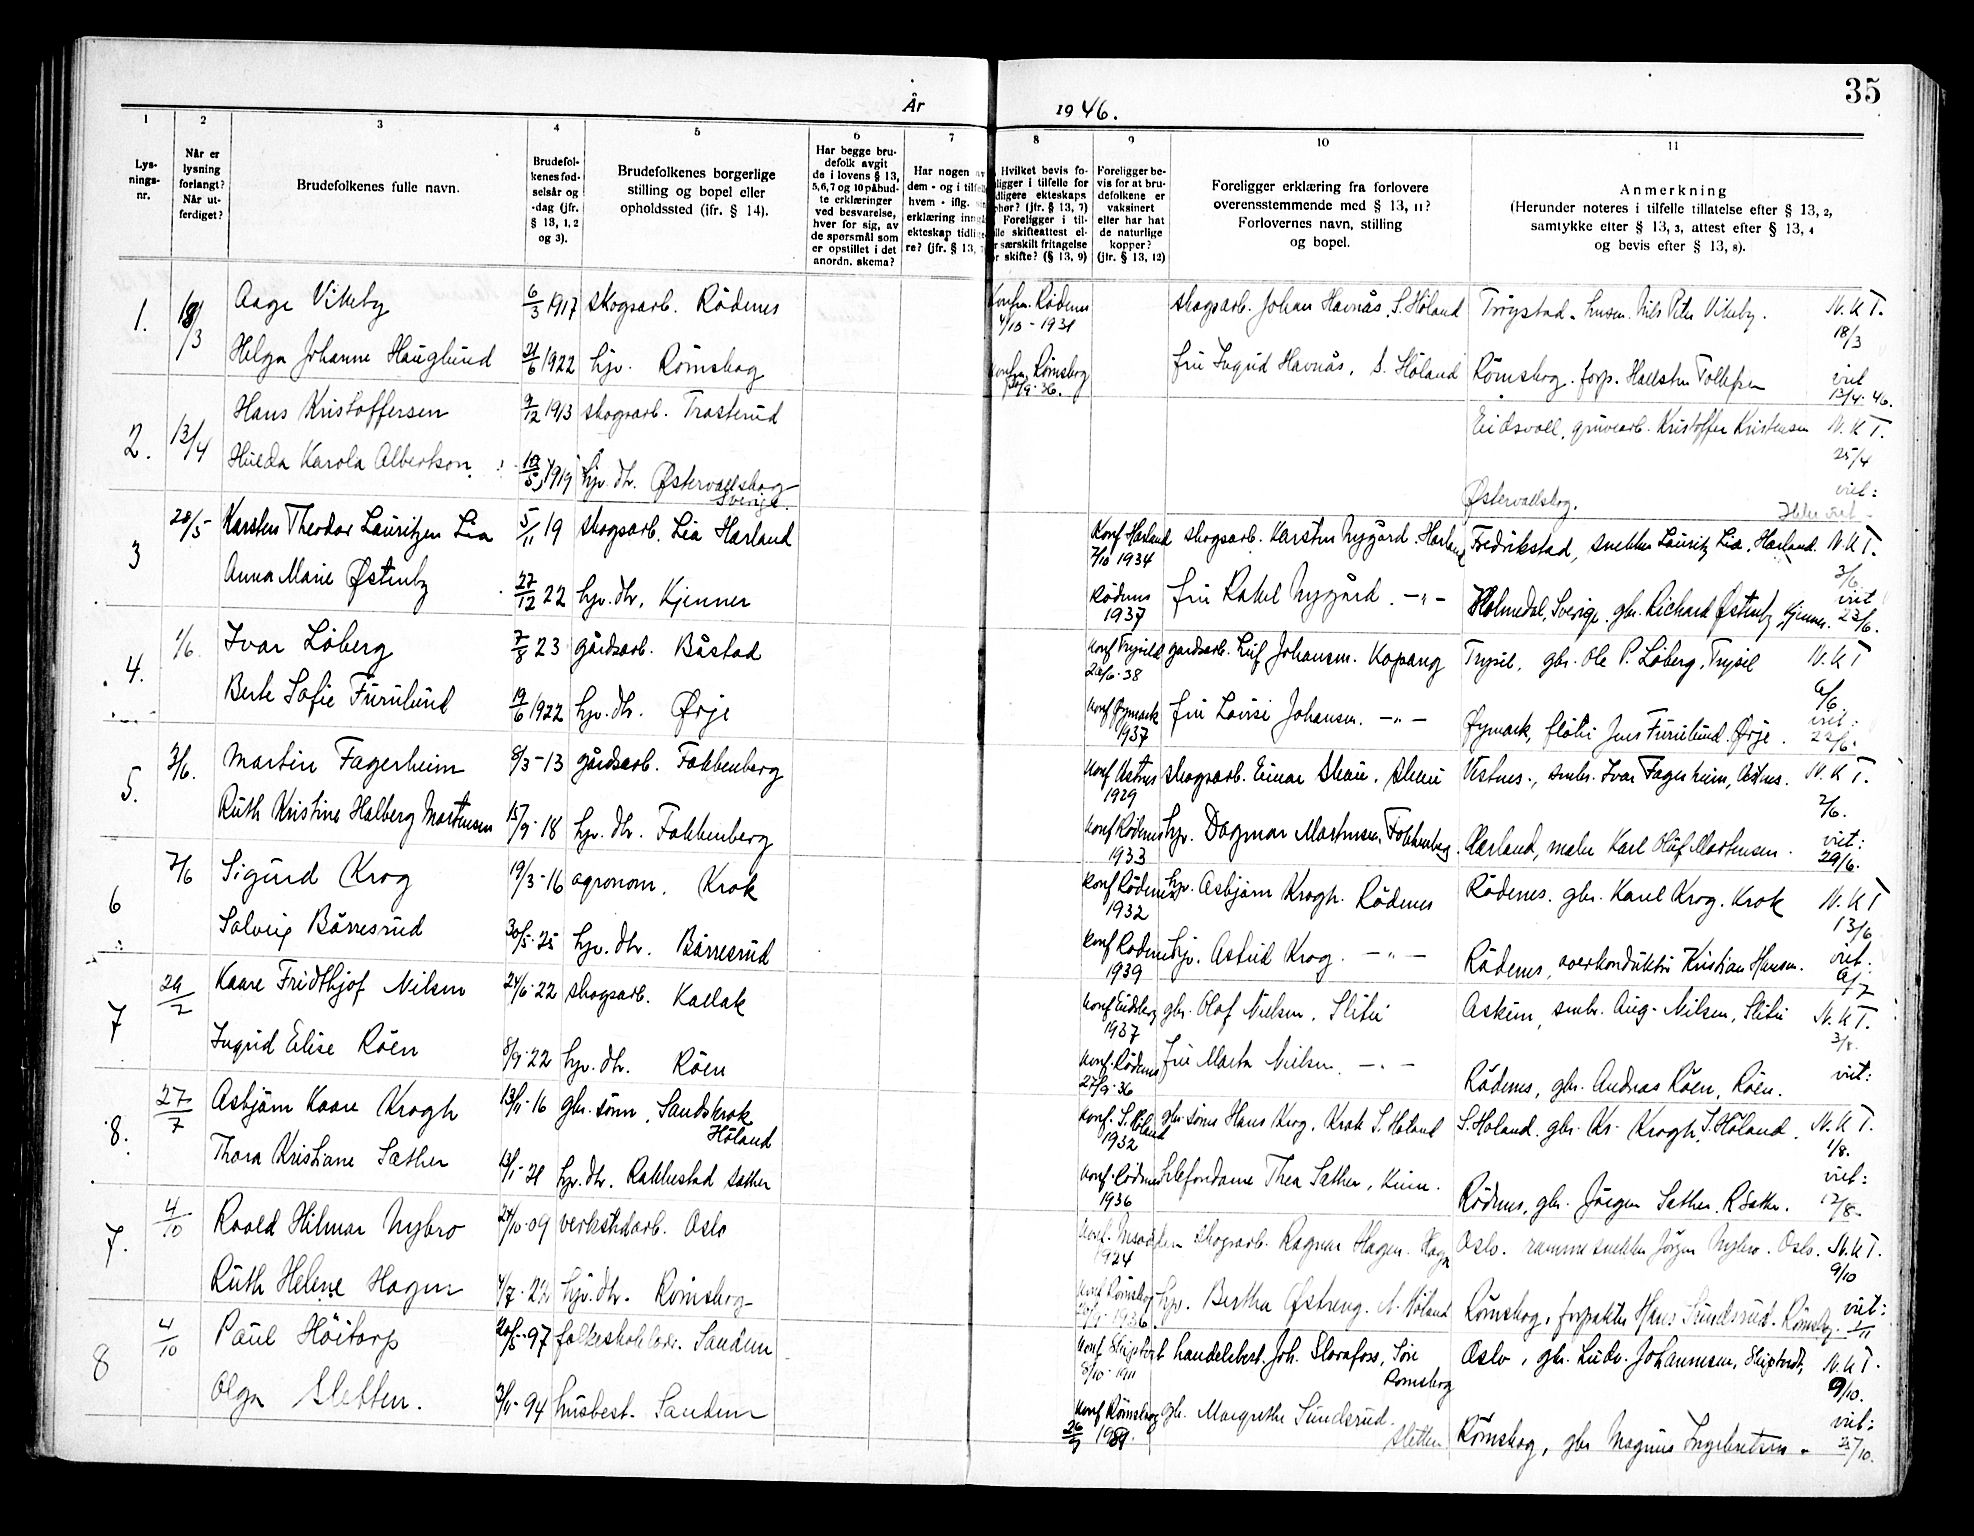 35
År 1946.
1 2 3 4 5 6 7 8 9 10 11
Lys-
nings-
nr.
Når er
lysning
forlangt?
Når ut-
ferdiget?
Brudefolkenes fulle navn.
Brudefol-
kenes fød-
selsår og
-dag (jfr.
§ 13, 1, 2
og 3).
Brudefolkenes borgerlige
stilling og bopel eller
opholdssted (ifr. § 14).
Har begge bru-
defolk avgit
de i lovens § 13,
5,6,7 og 10 påbud-
te erklæringer
ved besvarelse,
hver for sig, av
de spørsmål som
er opstillet i det
anordn. skema?
Har nogen
dem - og i tilf
hvem - iflg.
erklæring inng
ekteskap tidlig
re? (jfr. § 13,
Hvilket bevis fo-
ligger i tilfelle for
dligere ekteskaps
phør? (jfr. § 13, 7)
Foreligger i til-
lle skifteattest el-
r særskilt fritagelse
r skifte? (§ 13, 9)
Foreligger be-
vis for at bru-
defolkene er
vaksinert
eller har hat
de naturlige
kopper?
(jfr. § 13, 12)
Foreligger erklæring fra forlovere
overensstemmende med § 13, 11?
Forlovernes navn, stilling
og bopel.
Anmerkning
(Herunder noteres i tilfelle tillatelse efter § 13, 2,
samtykke efter § 13, 3, attest efter § 13, 4
og bevis efter § 13, 8).
1. 18/3 Aage Vikeby 6/3 1917 skogsarb. Rödenes Konfm. Rödenes 4/10 - 1931 skogsarb. Johan Havnås, S. Höland Trögstad. husm. Nils Peter Vikeby. N.K.T. 18/3
Helga Johanne Hauglund 21/6 1922 hjv. Römskog Konfm. Römskog /9-36. fru Ingrid Havnås, S. Höland Römskog. forp. Hallsten Tollefsen viet 13/4 46.
2. 13/4 Hans Kristoffersen 9/12 1913 skogsarb. Trosterud Eidsvoll, gruvearb. Kristoffer Kristensen N.K.T. 25/4
Hulda Karola Albertson 10/5 1919 hjv. dtr. Østervallskog Sverige. Østervallskog. viet: Ikke viet
3 28/5 Karsten Theodor Lauritzen Lia 5/11 19 skogsarb. Lia Harland Konf Harland 7/10 1934 skogsarb. Karsten Nygård. Harland Fredrikstad, snekker Lauritz Lia, Harland. N.K.T. 3/6
Anna Marie Østenby 27/12 22 hjv. dtr. Kjenner Rödenes 1937 fru Rakel Nygård. -"- Holmedal, Sverige. gbr. Richard Østenby Kjenner. viet 23/6.
4. 1/6. Ivar Löberg 7/8 23 gårdsarb. Båstad Konf Trysil 26/6-38 gardsarb. Leif Johansen. Kopang Trysil, gbr. Ole P. Löberg, Trysil N.K.T 6/6.
Berte Sofie Furulund 19/6 1922 hjv. dtr. Ørje Konf Øymark 1937 fru Lovise Johansen. -"- Øymark, fløter Jens Furulund. Ørje. viet: 22/6.
5. 3/6. Martin Fagerheim 8/3-13 gårdsarb. Fokkenberg Konf Vestnes 1929 skogsarb. Einar Skau, Vestnes., smbr. Ivar Fagerheim, Vestnes. N.K.T. 7/6.
Ruth Kristine Halberg Mortensen 15/9-18 hjv. dtr. Fokkenberg Konf Rödenes 1933 hjv. Dagmar Mortensen, Fokkenberg. Harland, maler Karl Oluf Mortensen. viet: 29/6.
6 7/6 Sigurd Krog 19/3-16 agronom. Krok Konf Rödenes 1932 hjv. Asbjörn Krogh. Rödenes Rödenes. gbr. Karel Krog. Krok N.K.T 13/6
Solveig Börresrud 30/5-25 hjv. dtr. Börresrud Konf Rödenes 1939 hjv. Astrid Krog. -"- Rödenes, overkonduktör Kristian Hansen. viet: 6/7
7 29/2 Kaare Fridthjof Nilsen 24/6-22 skogsarb. Kallak Konf Eidsberg 1937 gbr. Olaf Nielsen. Slitu Askim, smbr. Aug. Nilsen, Slitu N.K.T. 3/8.
Ingrid Elise Röen 8/9-22 hjv. dtr. Röen Konf. Rödenes 27/9-36 Fru Marta Nielsen. -"- Rödenes, gbr. Andreas Röen, Röen. viet:
8. 27/7 Asbjörn Kaare Krogh 13/11-16 gbr. sönn, Sandskrok Höland Konf. S. Höland 1932 gbr. sönn Hans Krog, Krok S. Höland S. Höland. gbr. Kr. Krogh, S. Höland. N.K.T. 1/8.
Thora Kristiane Sæther 13/1-21 hjv. dtr. Rakkestad sæther Konf. Rödenes 1936 telefondame Thea Sæther, Rödenes, gbr. Jörgen Sæther. R. Sæther. viet: 17/8.
7. 4/10 Roald Hilmar Nybro 24/10-09 verkstedarb. Oslo Konf. 1924 skogsarb. Ragnar Hagen. Oslo. rammesnekker Jörgen Nybro. Oslo. N.K.T. 9/10
Ruth Helene Hagen 4/7- hjv. dtr. Römskog Konf Römskog 1936 hjv. Bertha Østreng. N. Höland Römskog, forpakter Hans Sundsrud. Römskog. viet: 1/11
8 4/10 Paul Höitorp 20/5-97 folkeskolelær. Sandem Konf Skiptvedt 8/10-1911 handelsbest. Joh. Slorafoss, Söre Romskog Oslo, gbr. Ludv. Johannesen, Skiptvedt, N.K.T. 9/10.
Olga Sletten. 3/11-94 husbest. Sandem Konf Römskog 26/9 19 gbr. Margrethe Sundsrud. Sletten Römskog, gbr Magnus Ingebretsen. viet: 25/10.